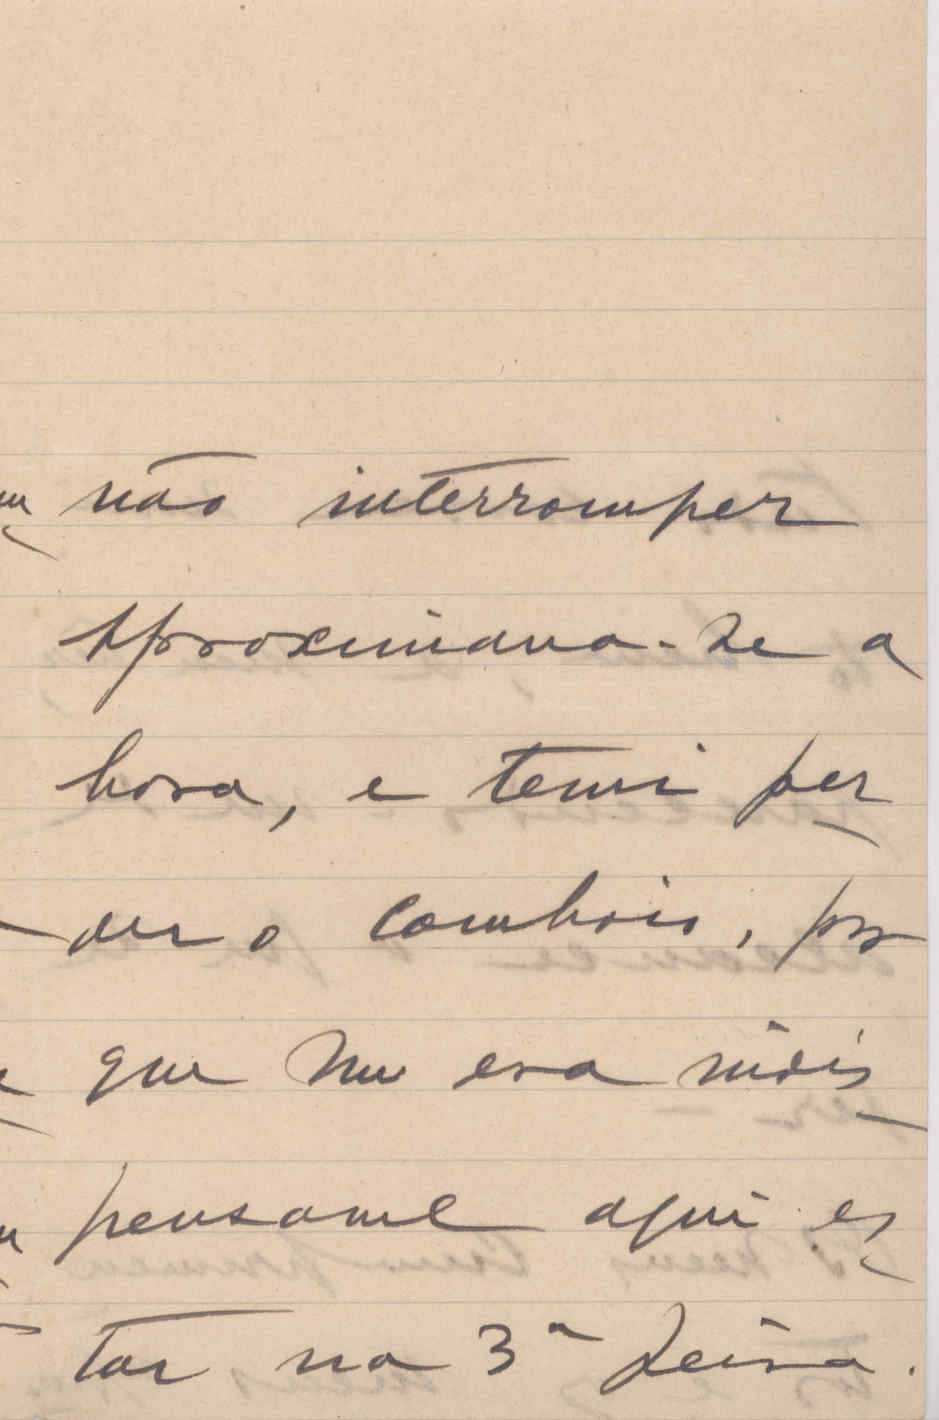 não interromper
Aproximava-se a
hora, e temi per
der o comboio, por
que me era indis
pensavel aqui es
tar na 3ª feira.